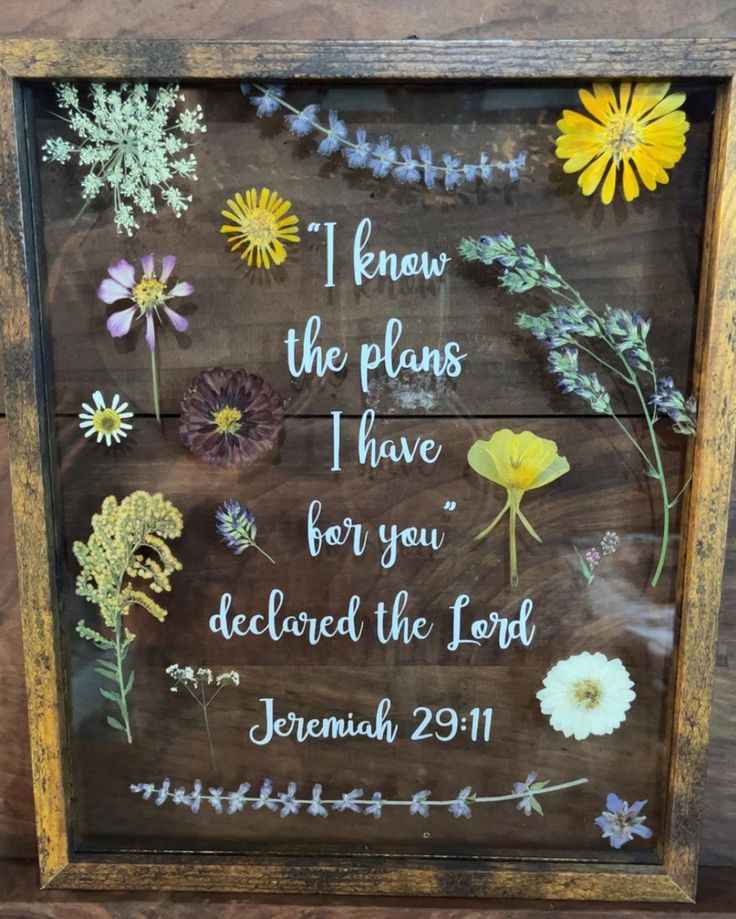 "I know
the plans
I have
for you"
declared the Lord
Jeremiah 29:11